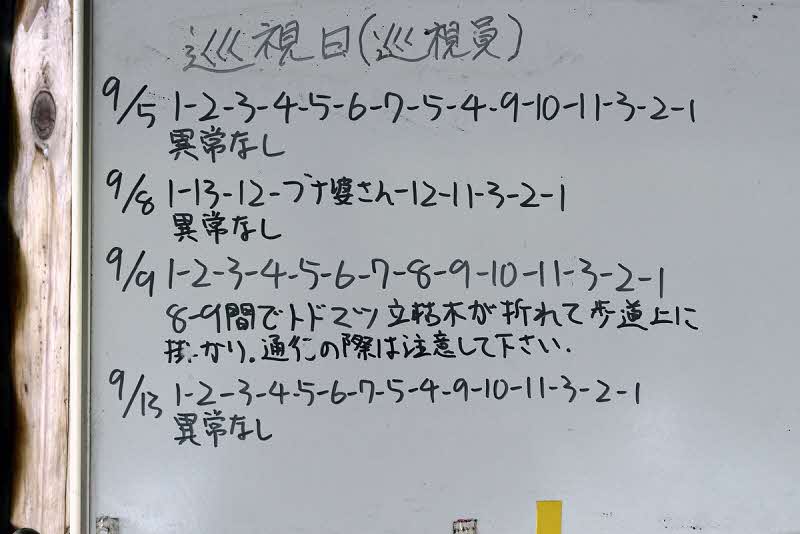 巡視日(巡視員)
9/5 1-2-3-4-5-6-7-5-4-9-10-11-3-2-1
異常なし
9/8 1-13-12-ブナ婆さん-12-11-3-2-1
異常なし
9/9 1-2-3-4-5-6-7-8-9-10-11-3-2-1
8-9間でトドマツ立枯木が折れて歩道上に
掛かり。通行の際は注意して下さい.
9/13 1-2-3-4-5-6-7-5-4-9-10-11-3-2-1
異常なし